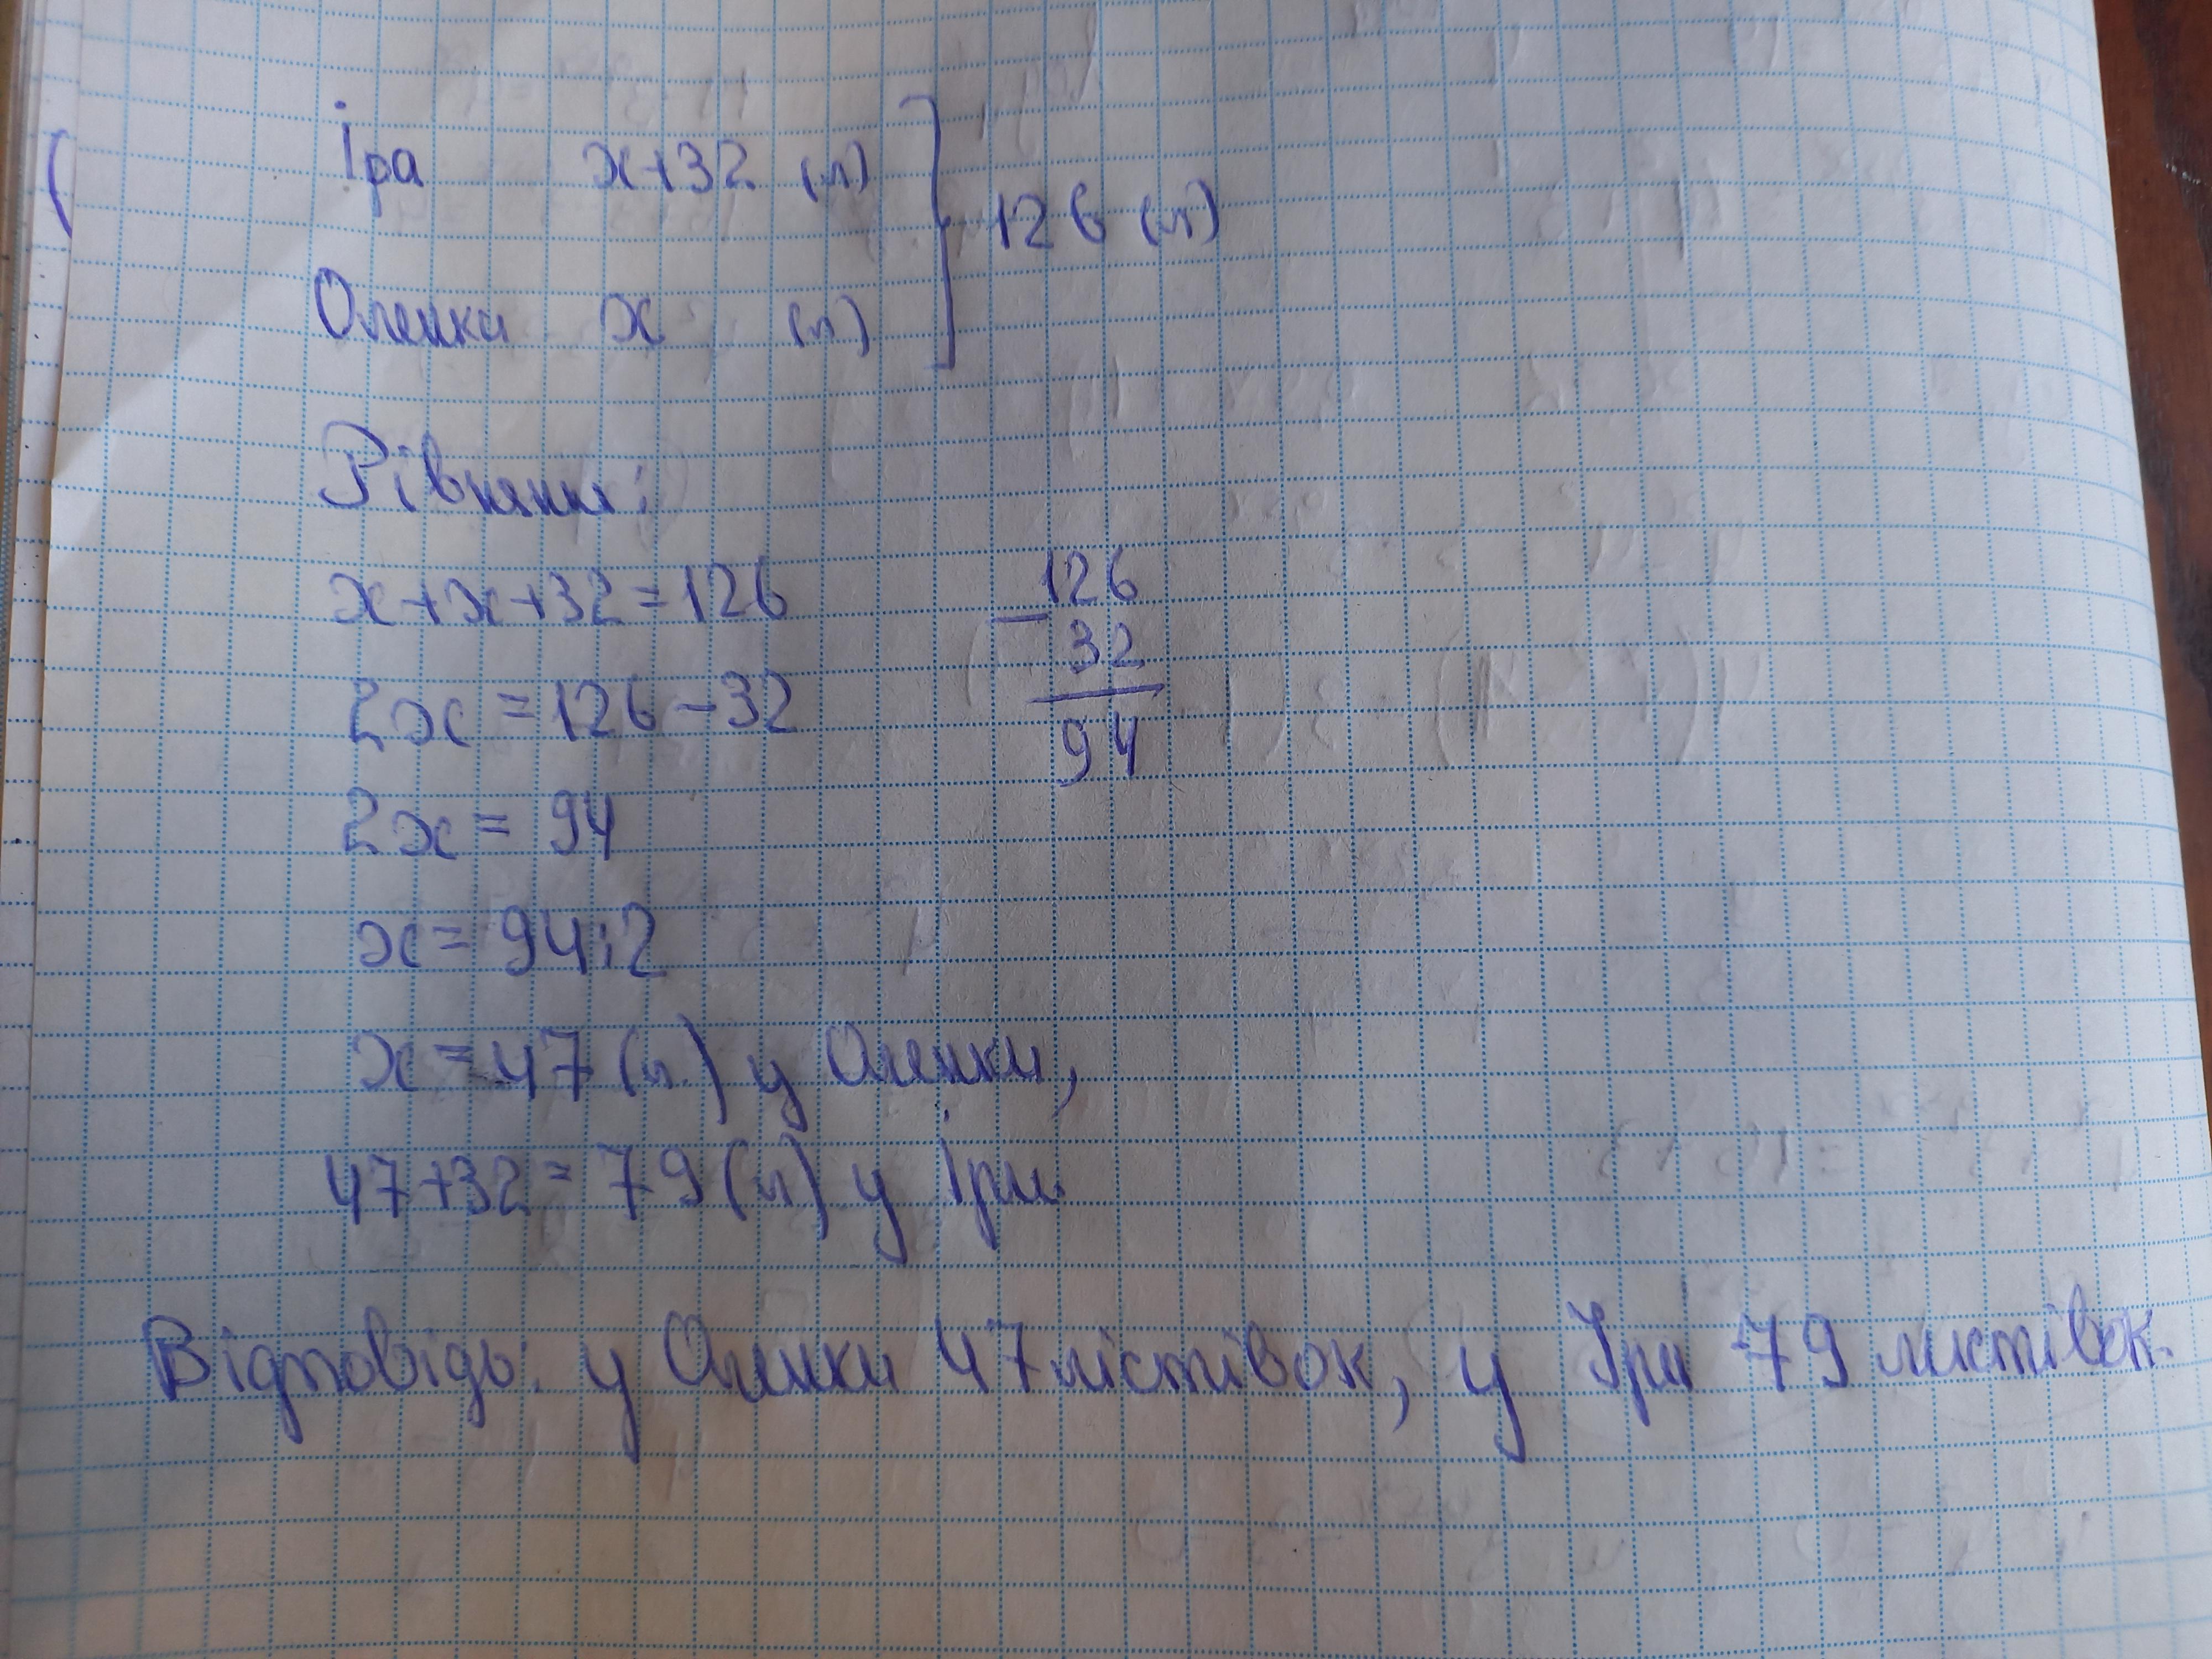 Іра x+32 (л)
126 (л)
Оленки x (л)
Рівняння:
x+x+32=126
2x=126-32
2x=94
x=94:2
x=47 (л) у Оленки,
47+32=79 (л) у Іри.
126
- 32
94
Відповідь: у Оленки 47 лістівок, у Іри 79 листівок.